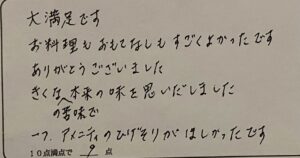 大満足です
お料理もおもてなしもすごくよかったです
ありがとうございました
きくな 本来の味を思いだしました
の苦味で
一つ、アメニティのひげそりがほしかったです
10点満点で 9 点